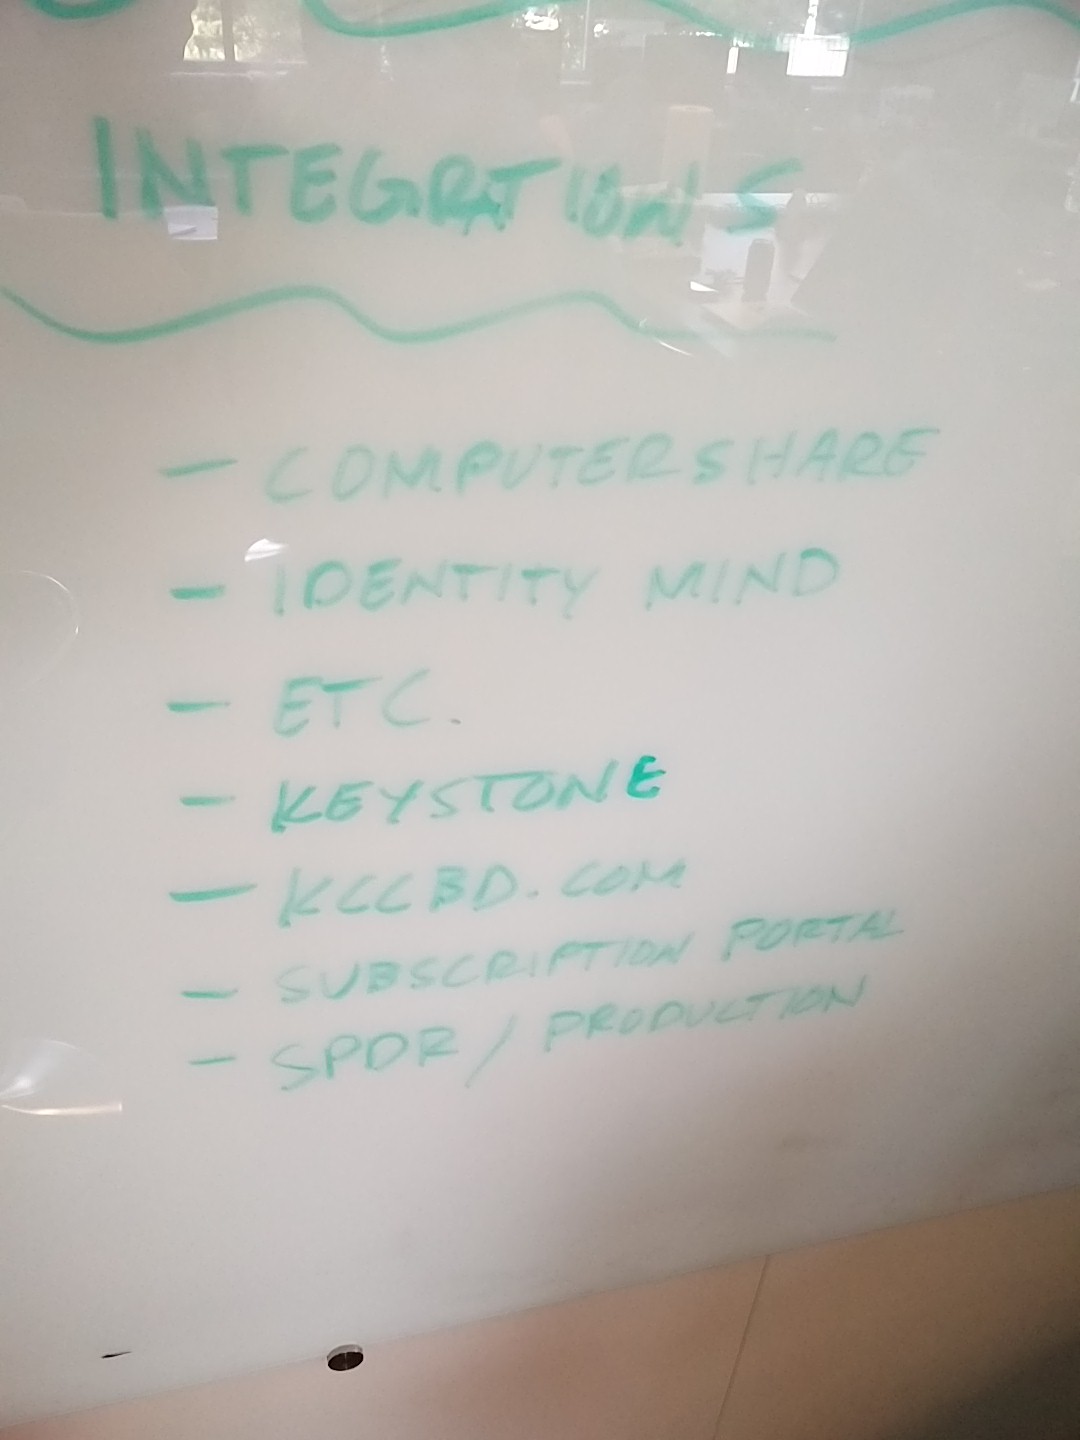 INTEGRATIONS
- COMPUTERSHARE
- IDENTITY MIND
- ETC.
- KEYSTONE
- KCCBD.COM
- SUBSCRIPTION PORTAL
- SPDR / PRODUCTION